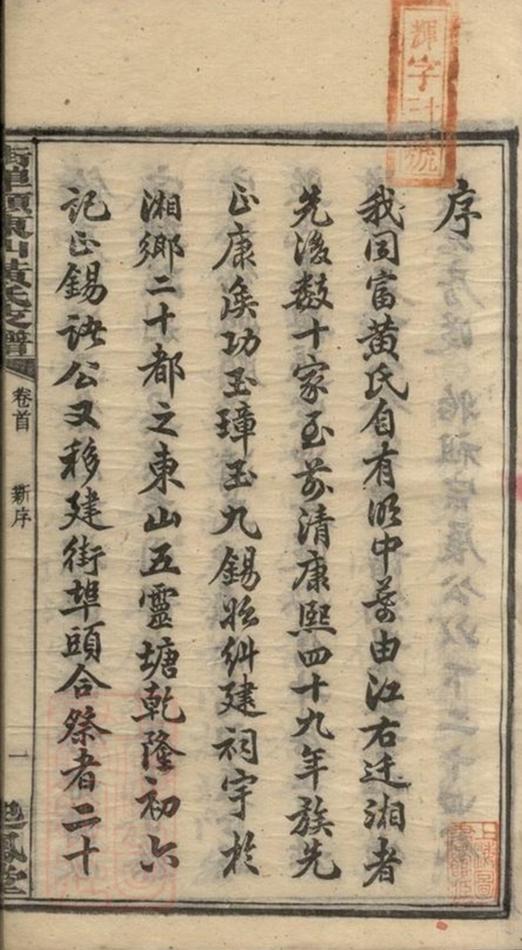 序
我同富黃氏自有明中葉由江右迁湘者
先後数十家至前清康熙四十九年族先
正康侯功玉璋玉九錫糾建祠宇於
湘鄉二十都之東山五靈塘乾隆初六
記正錫公又移建街埠頭合祭者二十
街埠頭東山黃氏支譜
卷首
新序
一
鳳堂